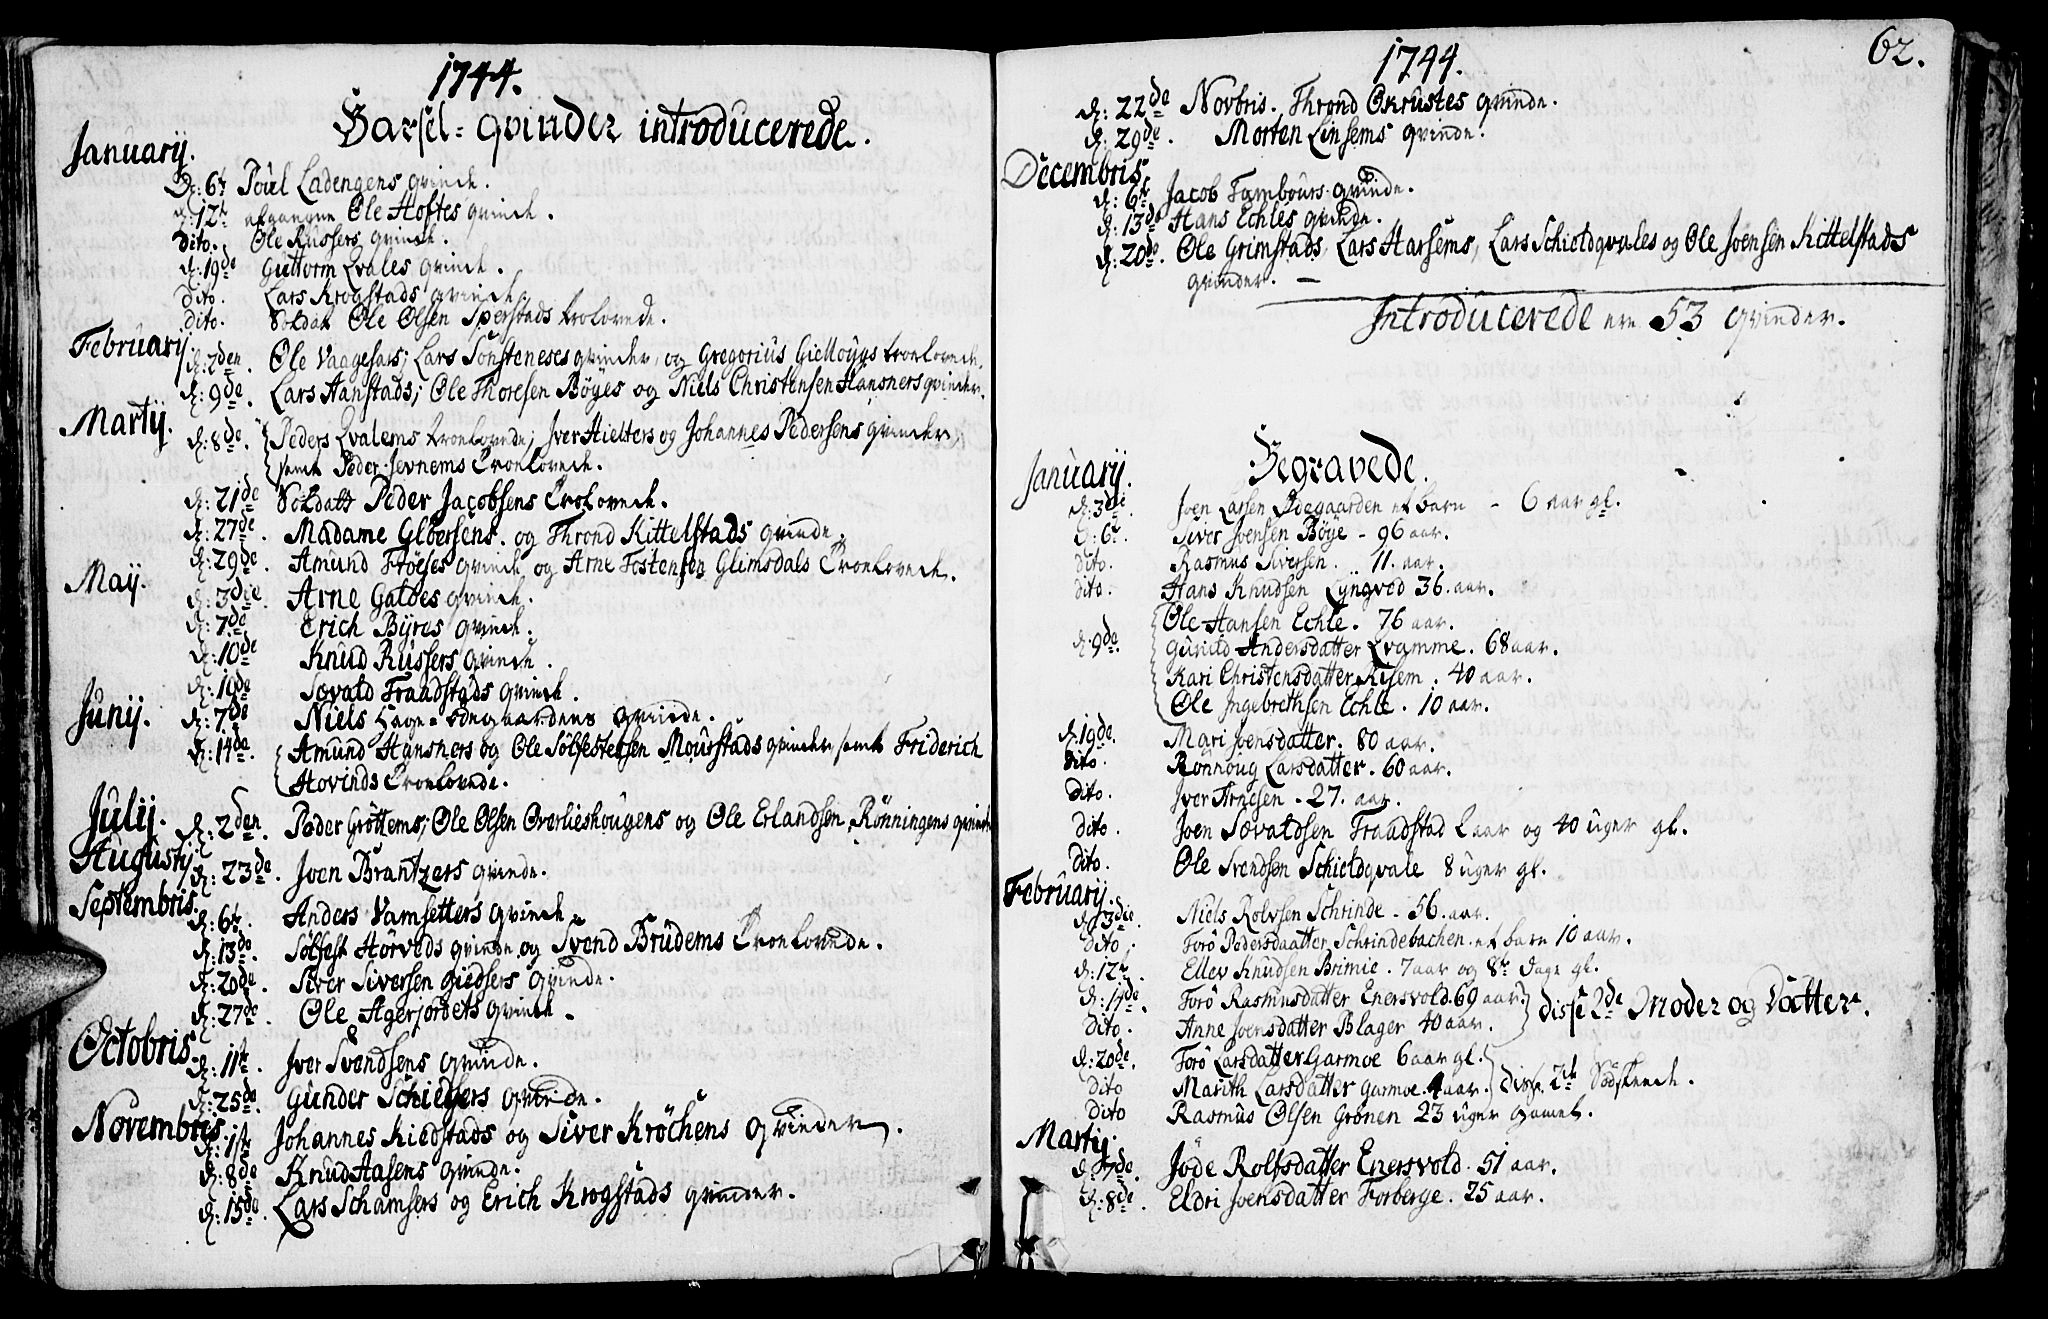 1744.
Barsel-qvinder introducerede.
Januarij.
D: 6te Poul Ladengens qvinde.
d: 12te afgangne Ole Hoftes qvinde.
dito. Ole Russers qvinde.
d: 19de Guttorm Qvales qvinde.
dito. Lars Krogstads qvinde.
dito. Soldat Ole Olsen Sperstads trolovede.
Februarij.
d: 2den. Ole Vaagesars, Lars Sønsteneses qvinder, og Gregorius Gielløygs troelovede.
d: 9de. Lars Hanstads, Ole Thoresen Bøyes og Niels Christensen Hansners qvinder.
Martij.
d: 8de. Peders Qvalems troelovede, Iver Hielters og Johannes Pedersens qvinder,
samt Peder Jevnems Troelovede.
d: 21de Soldatt Peder Jacobsens Trolovede.
d: 27de. Madame Glbersens og Thrond Kittelstads qvinde.
d: 29de. Amund Frøeses qvinde og Arne Tostensen Glimsdals Troelovede.
Maij.
d: 3die. Arne Galdes qvinde.
d: 7de Erich Byres qvinde.
d: 10de Knud Russers qvinde.
d: 19de Sævald Fraadstads qvinde.
Junij.
d: 7de Niels Hage-ødegaardens qvinde.
d: 14de. Amund Hansners og Ole Sølfestersen Mourstads qvinder samt Friderich
Hovinds Troelovede.
Julij.
d: 2den. Peder Grøttems, Ole Olsen Overlieshougens og Ole Erlandsen Rønningens qvinder
Augustij.
d: 23de. Joen Brantzers qvinde.
Septembris.
d: 6te. Anders Vamsetters qvinde.
d: 13de. Sølfest Hørveds qvinde og Svend Brudems Troelovede.
d: 20de. Siver Siversen Giedsers qvinde.
d: 27de. Ole Agerjordets qvinde.
Octobris.
d: 11te. Iver Svendsens qvinde.
d: 25de. Gunder Schiegers qvinde.
Novembris.
d: 1ste Johannes Kiedstads og Siver Krøchens qvinder.
d: 8de Knud Hasens qvinde.
d: 15de. Lars Schamsers og Erich Krogstads qvinder.
62.
1744.
d: 22de Novbris. Thrond Økrustes qvinde.
d: 29de. Morten Linsems qvinde.
Decembris.
d: 6te Jacob Tambours qvinde.
d: 13de Hans Echles qvinde.
d: 20de. Ole Grimstads, Lars Harsems, Lars Schiotdqvales og Ole Joensen Kittelstads
qvinder. —
Introducerede ere 53 qvinder.
Begravede.
Januarij.
d: 3die. Joen Larsen Ødegaarden et barn - 6 aar gl.
d: 6te. Siver Joensen Bøye - 96 aar.
dito. Rasmus Siversen. 11. aar.
dito. Hans Knudsen Lyngved 36. aar.
Ole Hansen Echle. 76 aar.
d: 9de. Gunild Andersdatter Qvamme. 68 aar.
Kari Christensdatter Risem. 40 aar.
Ole Ingebrethsen Echle. 10 aar.
d: 19de. Mari Joensdatter. 80 aar.
dito. Rønnoug Larsdatter. 60 aar.
dito. Iver Arnesen - 27. aar.
dito. Joen Sævaldsen Fraadstad 2 aar og 40 uger gl.
dito. Ole Svendsen Schietdqvale 8 uger gl.
Februarij.
d: 3die. Niels Rolvsen Schrinde - 56. aar.
dito. Torø Pedersdaatter Schrindebachen. et barn 10 aar.
d: 12te. Ellev Knudsen Brimie. 7 aar og 8te Dage gl.
d: 17de. Torø Rasmusdatter Enersvold. 69 aar.
dito. Anne Joensdatter Blager 40 aar. } disse 2de Moder og Datter.
d: 20de. Torø Larsdatter Garmoe 6 aar gl.
dito Marith Larsdatter Garmoe. 4 aar. } Disse 2de Sødskende.
dito Rasmus Olsen Grønen 23 uger gamel.
Martij.
d: 7de. Jøde Rolfsdatter Enersvold. 51 aar.
d: 8de. Eldri Joensdatter Forberge. 25 aar.